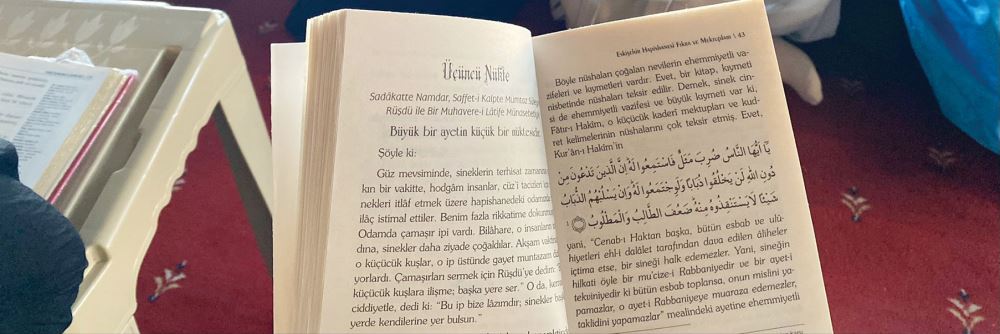 Üçüncü Nükte
Sadâkatte Namdar, Saffet-i Kalpte Mümtaz
Rüşdü ile Bir Muhavere-i Lâtife Münasebetiyle
Büyük bir ayetin küçük bir nüktesidir.
Şöyle ki:
Güz mevsiminde, sineklerin terhisat zamanına
kın bir vakitte, hodgâm insanlar, cüz'î tacizleri için
nekleri itlâf etmek üzere hapishanedeki odamızda
ilaç istimal ettiler. Benim fazla rikkatime dokunmuş
Odamda çamaşır ipi vardı. Bilâhare, o insanların
dına, sinekler daha ziyade çoğaldılar. Akşam vaktinde
o küçücük kuşlar, o ip üstünde gayet muntazam
yorlardı. Çamaşırları sermek için Rüşdü'ye dedim:
küçücük kuşlara ilişme; başka yere ser." O da, kemal-i
ciddiyetle, dedi ki: "Bu ip bize lâzımdır; sinekler başka
yerde kendilerine yer bulsun."
Eskişehir Hapishanesi Fıkra ve Mektupları \ 43
Böyle nüshaları çoğalan nevilerin ehemmiyetli va-
zifeleri ve kıymetleri vardır. Evet, bir kitap, kıymeti
nisbetinde nüshaları teksir edilir. Demek, sinek cin-
si de ehemmiyetli vazifesi ve büyük kıymeti var ki,
Fâtır-ı Hakîm, o küçücük kaderî mektupları ve kud-
ret kelimelerinin nüshalarını çok teksir etmiş. Evet,
Kur'ân-ı Hakîm'in
يَٓا اَيُّهَا النَّاسُ ضُرِبَ مَثَلٌ فَاسْتَمِعُوا لَهُ اِنَّ الَّذِينَ تَدْعُونَ مِنْ
دُونِ اللّٰهِ لَنْ يَخْلُقُوا ذُبَابًا وَلَوِ اجْتَمَعُوا لَهُ وَاِنْ يَسْلُبْهُمُ الذُّبَابُ
شَيْئًا لَا يَسْتَنْقِذُوهُ مِنْهُ ضَعُفَ الطَّالِبُ وَالْمَطْلُوبُ
yani, "Cenab-ı Haktan başka, bütün esbab ve ulû-
hiyetleri ehl-i dalâlet tarafından dava edilen âliheler
içtima etse, bir sineği halk edemezler. Yani, sineğin
hilkati öyle bir mu'cize-i Rabbaniyedir ve bir ayet-i
tekviniyedir ki bütün esbab toplansa, onun mislini ya-
pamazlar, o ayet-i Rabbaniyeye muaraza edemezler,
taklidini yapamazlar" mealindeki ayetine ehemmiyetli